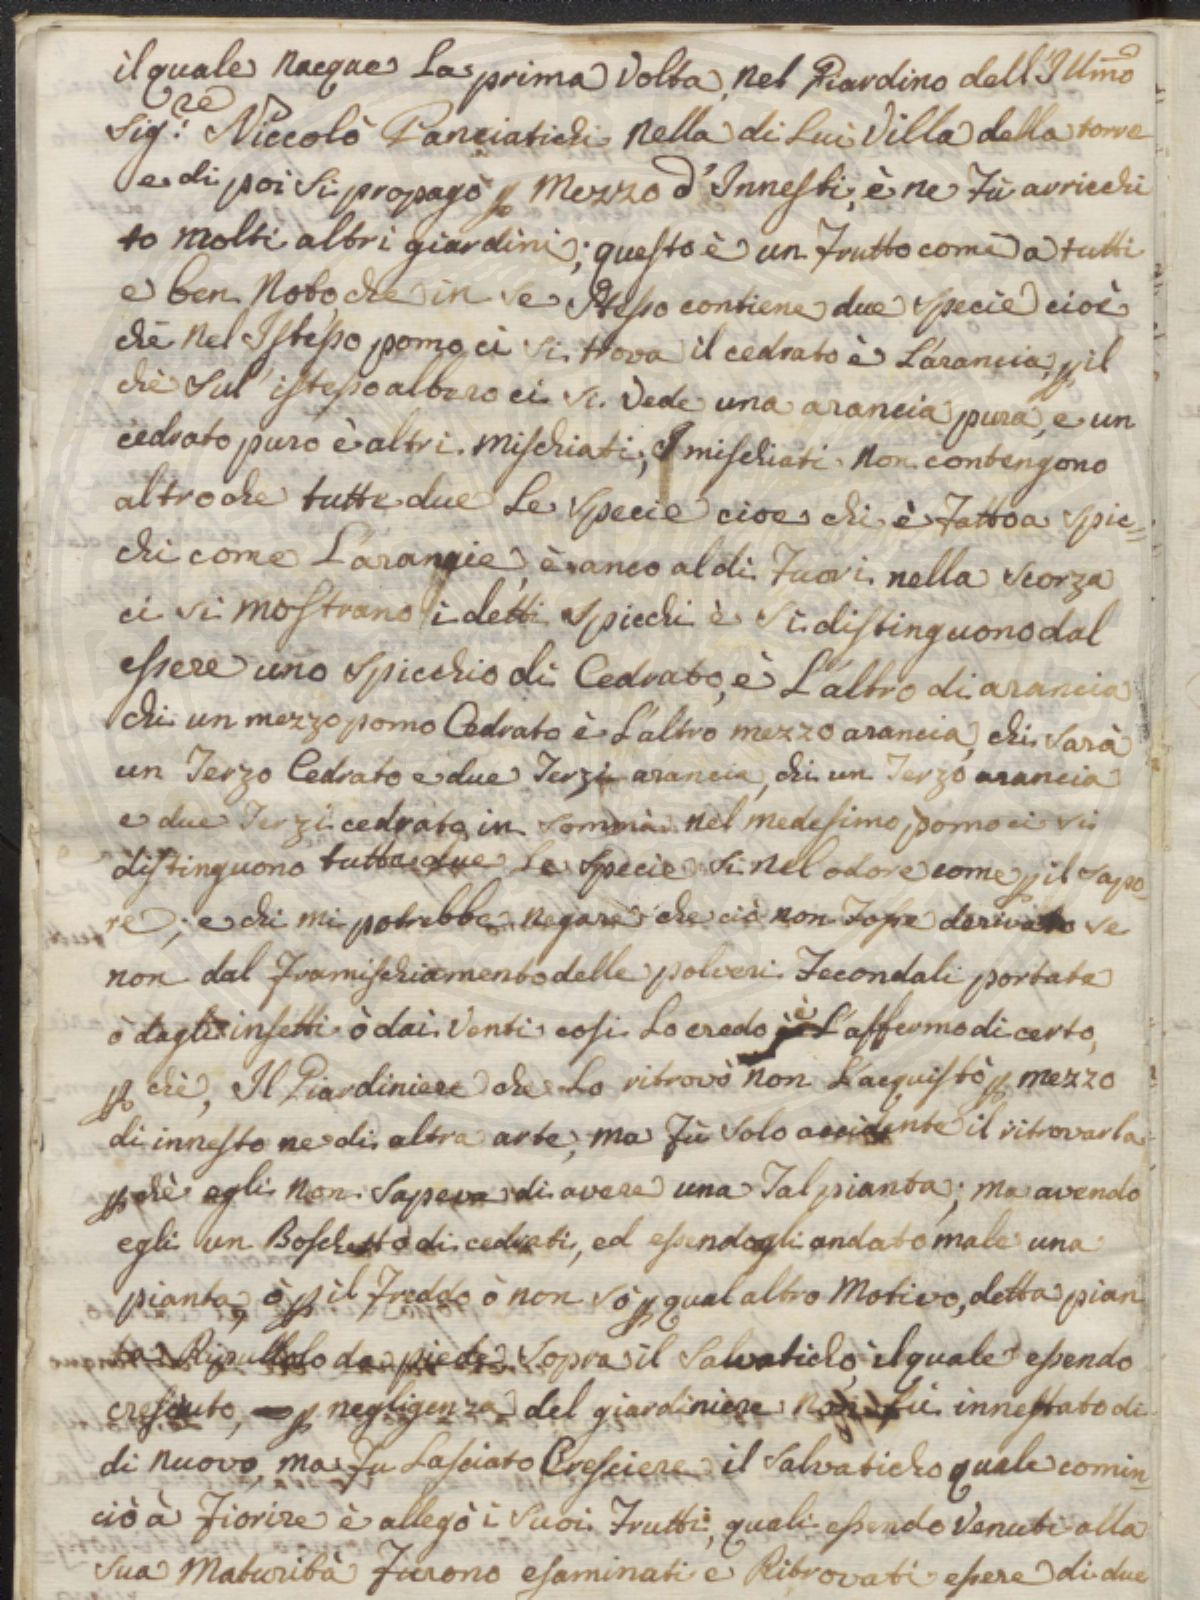 il quale nacque La prima volta, nel Giardino dell'Illmo
Sig.re Niccolò Panciatichi nella di Lui Villa della torre
e di poi si propagò p mezzo d'Innesti, è ne fù arricchi
to molti altri giardini; questo è un frutto come a tutti
e ben Noto che in se stesso contiene due specie cioè
chè nel Istesso pomo ci si trova il cedrato è L'arancia, p il
chè sul' istesso albero ci si vede una arancia pura, e un
cedrato puro è altri mischiati, I mischiati non contengono
altro che tutte due Le specie cioe chi è fatto a spic=
chi come L'arancie, è anco al di fuori nella scorza
ci si mostrano i detti spicchi è si distinguono dal
essere uno spicchio di Cedrato, è L'altro di arancia
chi un mezzo pomo Cedrato è L'altro mezzo arancia, chi sarà
un Terzo Cedrato e due Terzi arancia, chi un Terzo arancia
e due Terzi cedrato, in somma nel medesimo pomo ci si
distinguono tutte due Le specie si nel odore come p il sapo
re; e chi mi potrebbe negare che ciò non fosse derivato se
non dal framischiamento delle polveri fecondali portate
ò dagli insetti ò dai Venti cosi Lo credo è L'affermo di certo,
p chè, Il Giardiniere che Lo ritrovò non L'acquistò p mezzo
di innesto ne di altra arte, ma fù solo accidente il ritrovarla
p chè egli non sapeva di avere una Tal pianta; ma avendo
egli un Boschetto di cedrati, ed essendogli andato male una
pianta, ò p il freddo ò non sò p qual altro Motivo, detta pian
ta Ripullulo da piede sopra il salvaticho, il quale essendo
cresciuto, p negligenza del giardiniere non fù innestato di
di nuovo, ma fu Lasciato Cresciere il salvaticho quale comin=
ciò à fiorire è allegò i suoi frutti, quali essendo Venuti alla
sua Maturità furono esaminati e Ritrovati essere di due